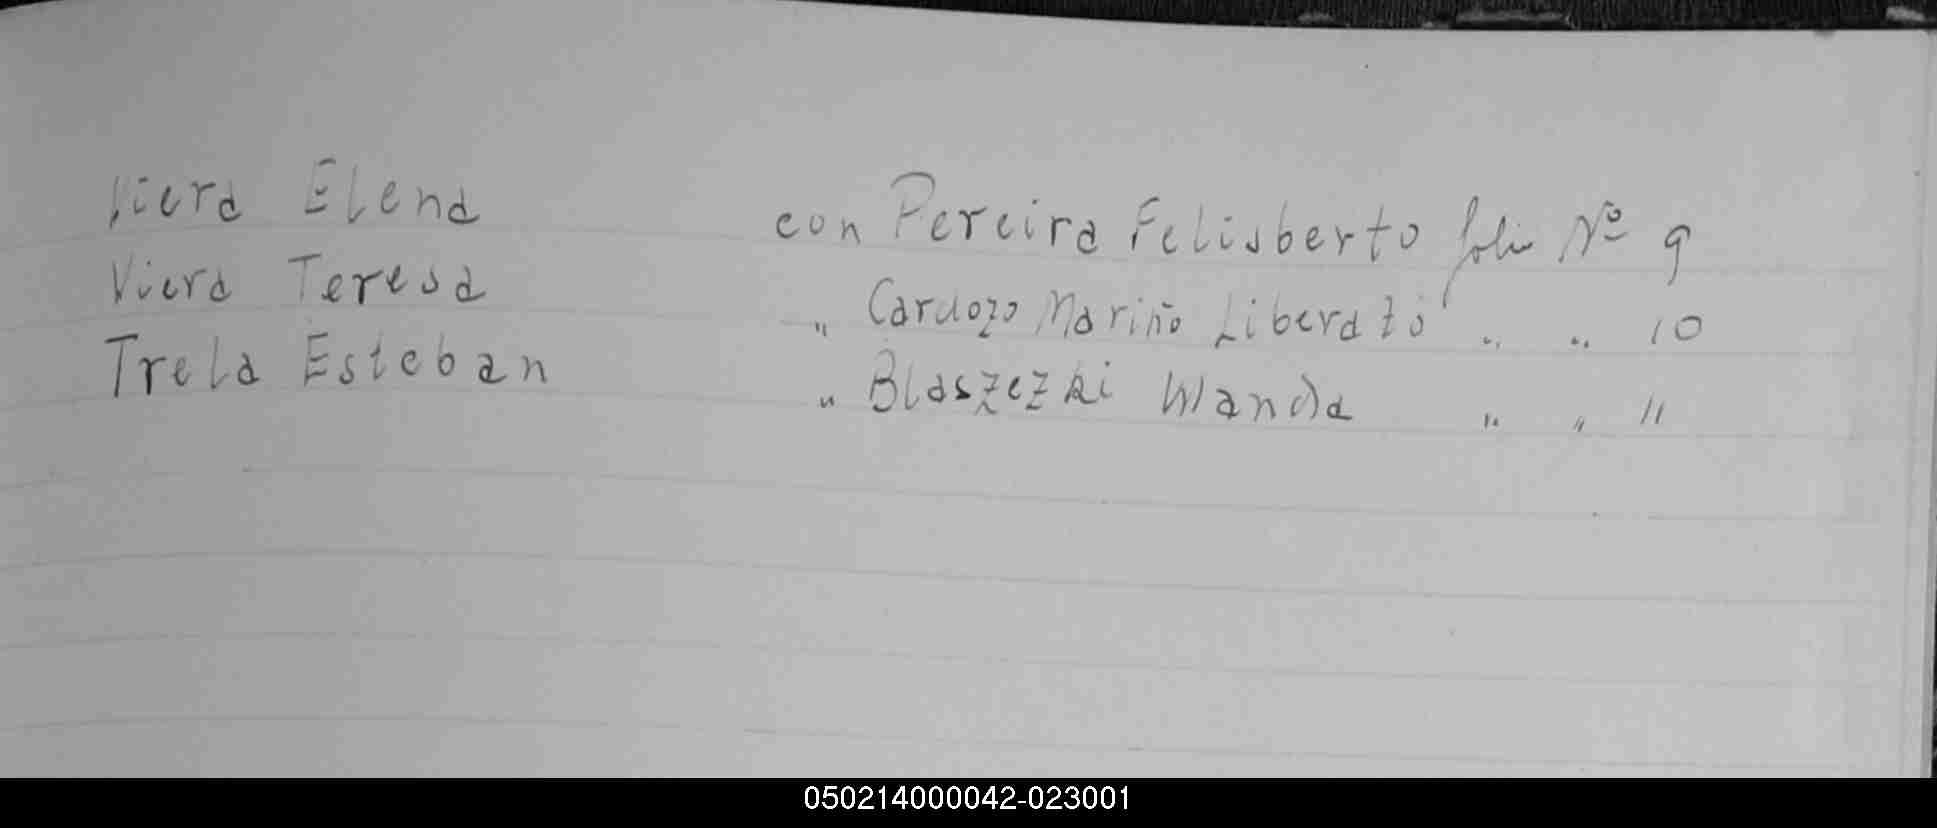 Viera Elena con Pereira Felisberto folio Nº 9
Viera Teresa " Cardozo Mariño Liberato " " 10
Trela Esteban " Blaszezki Wanda " " 11
050214000042-023001